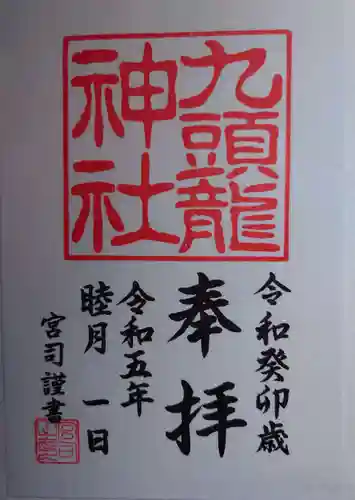 九頭龍
神社
令和癸卯歳
奉拝
令和五年
睦月 一日
宮司謹書